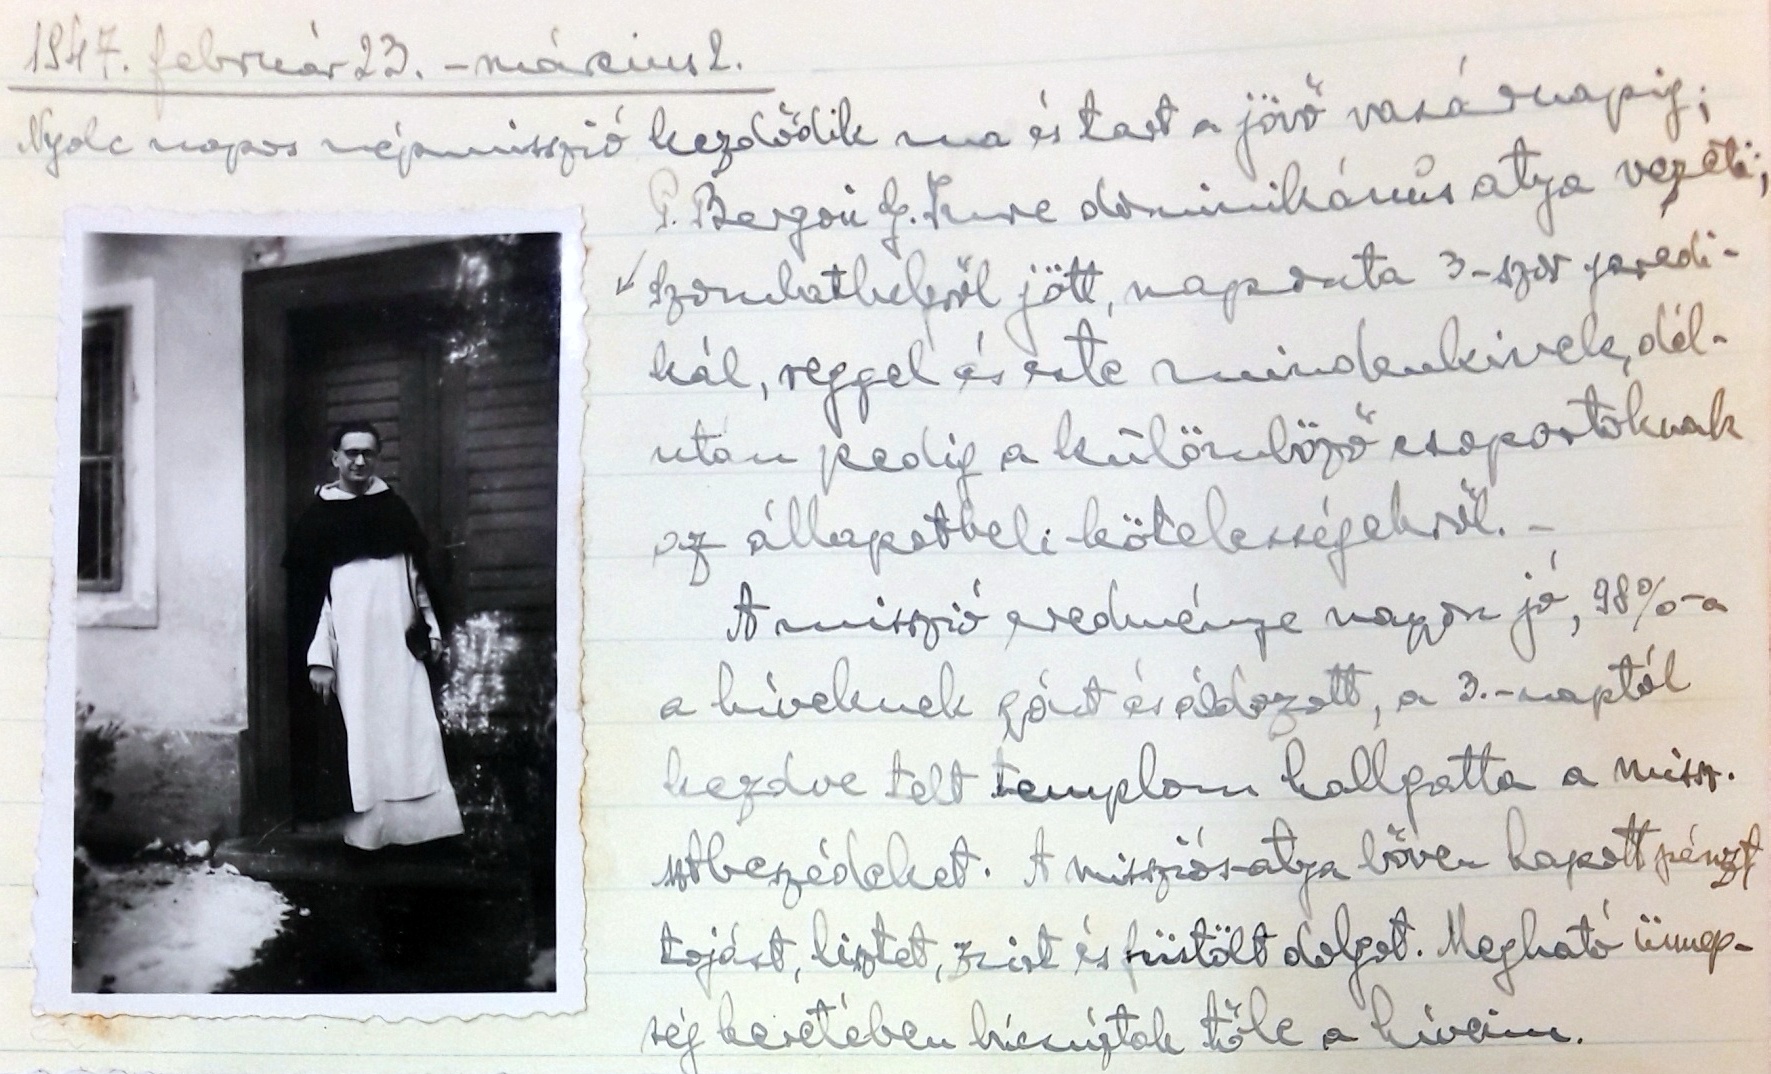 1947. február 23. – március 2.
Nyolc napos népmisszió kezdődik ma és tart a jövő vasárnapig;
P. Imre dominikánus atya vezeti;
Szombathelyről jött, naponta 3-szor predi-
kál, reggel és este mindenkinek, dél-
után pedig a külömböző csoportoknak
az állapotbeli kötelességekről. –
A misszió eredménye nagyon jó, 98%-a
a híveknek gyónt és áldozott, a 3.-naptól
kezdve telt templom hallgatta a missz.
sztbeszédeket. A missziós-atya bőven kapott pénzt
tojást, lisztet, zsírt és füstölt dolgot. Megható ünnep-
ség keretében búcsúztak tőle a híveim.